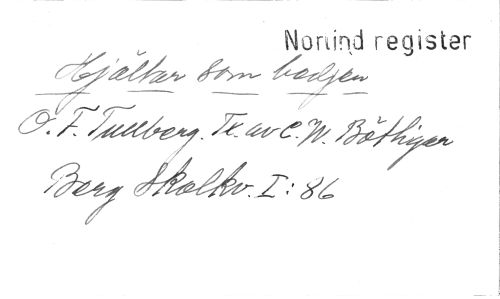 Norlind register
Hjältar som bedjen
O. F. Tullberg. Tx. av C. W. Böttiger
Berg Skolkv. I: 86